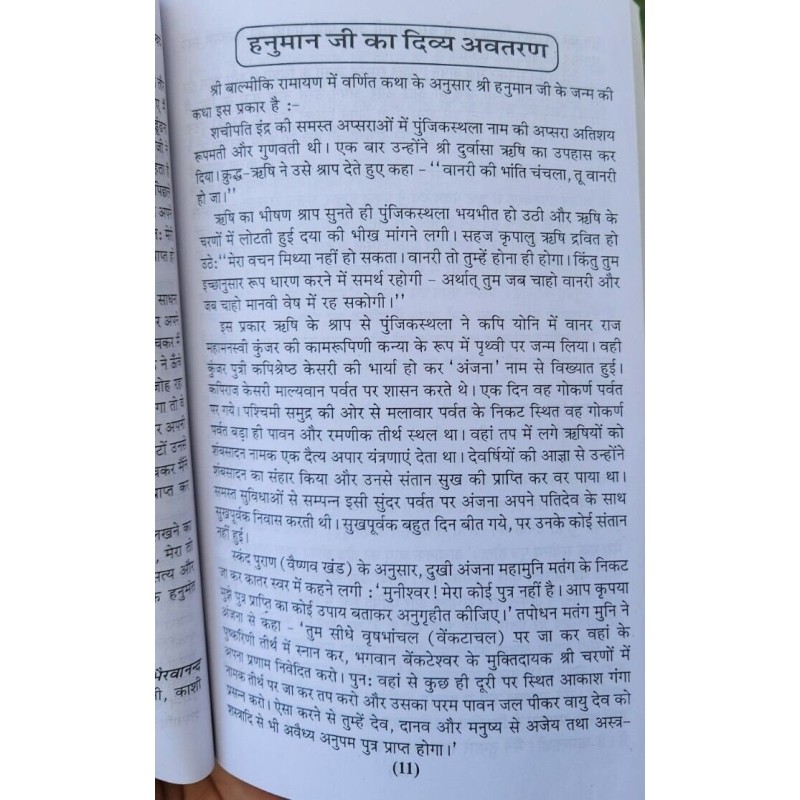 हनुमान जी का दिव्य अवतरण
श्री बाल्मीकि रामायण में वर्णित कथा के अनुसार श्री हनुमान जी के जन्म की
कथा इस प्रकार है :-
शचीपति इंद्र की समस्त अप्सराओं में पुंजिकस्थला नाम की अप्सरा अतिशय
रूपमती और गुणवती थी। एक बार उन्होंने श्री दुर्वासा ऋषि का उपहास कर
दिया। क्रुद्ध-ऋषि ने उसे श्राप देते हुए कहा - ''वानरी की भांति चंचला, तू वानरी
हो जा।''
ऋषि का भीषण श्राप सुनते ही पुंजिकस्थला भयभीत हो उठी और ऋषि के
चरणों में लोटती हुई दया की भीख मांगने लगी। सहज कृपालु ऋषि द्रवित हो
उठे:''मेरा वचन मिथ्या नहीं हो सकता। वानरी तो तुम्हें होना ही होगा। किंतु तुम
इच्छानुसार रूप धारण करने में समर्थ रहोगी - अर्थात् तुम जब चाहो वानरी और
जब चाहो मानवी वेष में रह सकोगी।''
इस प्रकार ऋषि के श्राप से पुंजिकस्थला ने कपि योनि में वानर राज
महामनस्वी कुंजर की कामरूपिणी कन्या के रूप में पृथ्वी पर जन्म लिया। वही
कुंजर पुत्री कपिश्रेष्ठ केसरी की भार्या हो कर 'अंजना' नाम से विख्यात हुई।
कपिराज केसरी माल्यवान पर्वत पर शासन करते थे। एक दिन वह गोकर्ण पर्वत
पर गये। पश्चिमी समुद्र की ओर से मलावार पर्वत के निकट स्थित वह गोकर्ण
पर्वत बड़ा ही पावन और रमणीक तीर्थ स्थल था। वहां तप में लगे ऋषियों को
शंबसादन नामक एक दैत्य अपार यंत्रणाएं देता था। देवर्षियों की आज्ञा से उन्होंने
शंबसादन का संहार किया और उनसे संतान सुख की प्राप्ति कर वर पाया था।
समस्त सुविधाओं से सम्पन्न इसी सुंदर पर्वत पर अंजना अपने पतिदेव के साथ
सुखपूर्वक निवास करती थी। सुखपूर्वक बहुत दिन बीत गये, पर उनके कोई संतान
नहीं हुई।
स्कंद पुराण (वैष्णव खंड) के अनुसार, दुखी अंजना महामुनि मतंग के निकट
जा कर कातर स्वर में कहने लगी :'मुनीश्वर! मेरा कोई पुत्र नहीं है। आप कृपया
मुझे पुत्र प्राप्ति का कोई उपाय बताकर अनुगृहीत कीजिए।' तपोधन मतंग मुनि ने
अंजना से कहा - 'तुम सीधे वृषभांचल (वेंकटाचल) पर जा कर वहां के
पुष्करिणी तीर्थ में स्नान कर, भगवान बेंकटेश्वर के मुक्तिदायक श्री चरणों में
अपना प्रणाम निवेदित करो। पुन: वहां से कुछ ही दूरी पर स्थित आकाश गंगा
नामक तीर्थ पर जा कर तप करो और उसका परम पावन जल पीकर वायु देव को
प्रसन्न करो। ऐसा करने से तुम्हें देव, दानव और मनुष्य से अजेय तथा अस्त्र-
शस्त्रादि से भी अवैध्य अनुपम पुत्र प्राप्त होगा।'
(11)
साधन
र अपने
नखने का
, मेरा तो
सत्य और
हनुमंत
भैरवानन्द
काशी